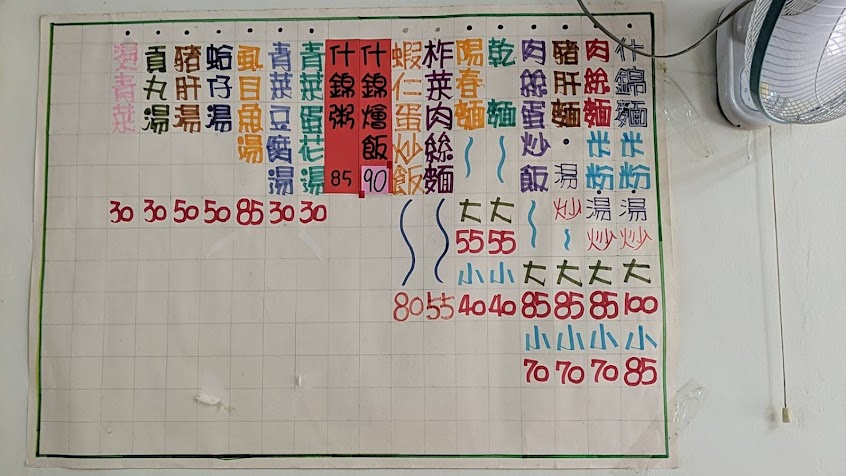 什錦麵米粉・湯炒大100小85
肉絲麵米粉・湯炒大85小70
豬肝麵・湯炒大85小70
肉絲蛋炒飯大85小70
乾麵大55小40
陽春麵大55小40
柞菜肉絲麵55
蝦仁蛋炒飯80
什錦燴飯90
什錦粥85
青菜蛋花湯30
青菜豆腐湯30
虱目魚湯85
蛤仔湯50
豬肝湯50
貢丸湯30
燙青菜30